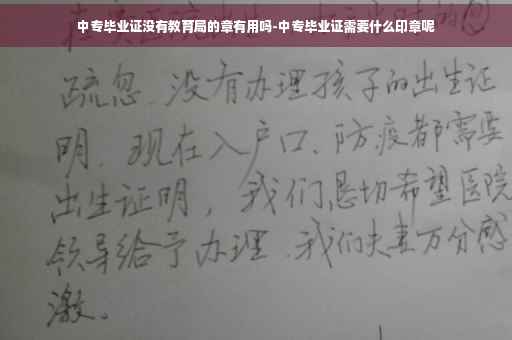 中专毕业证没有教育局的章有用吗-中专毕业证需要什么印章呢
疏忽、没有办理孩子的出生证
明、现在入户口、防疫都需要
出生证明，我们恳切希望医院
领导给予办理、我们夫妻万分感
激。